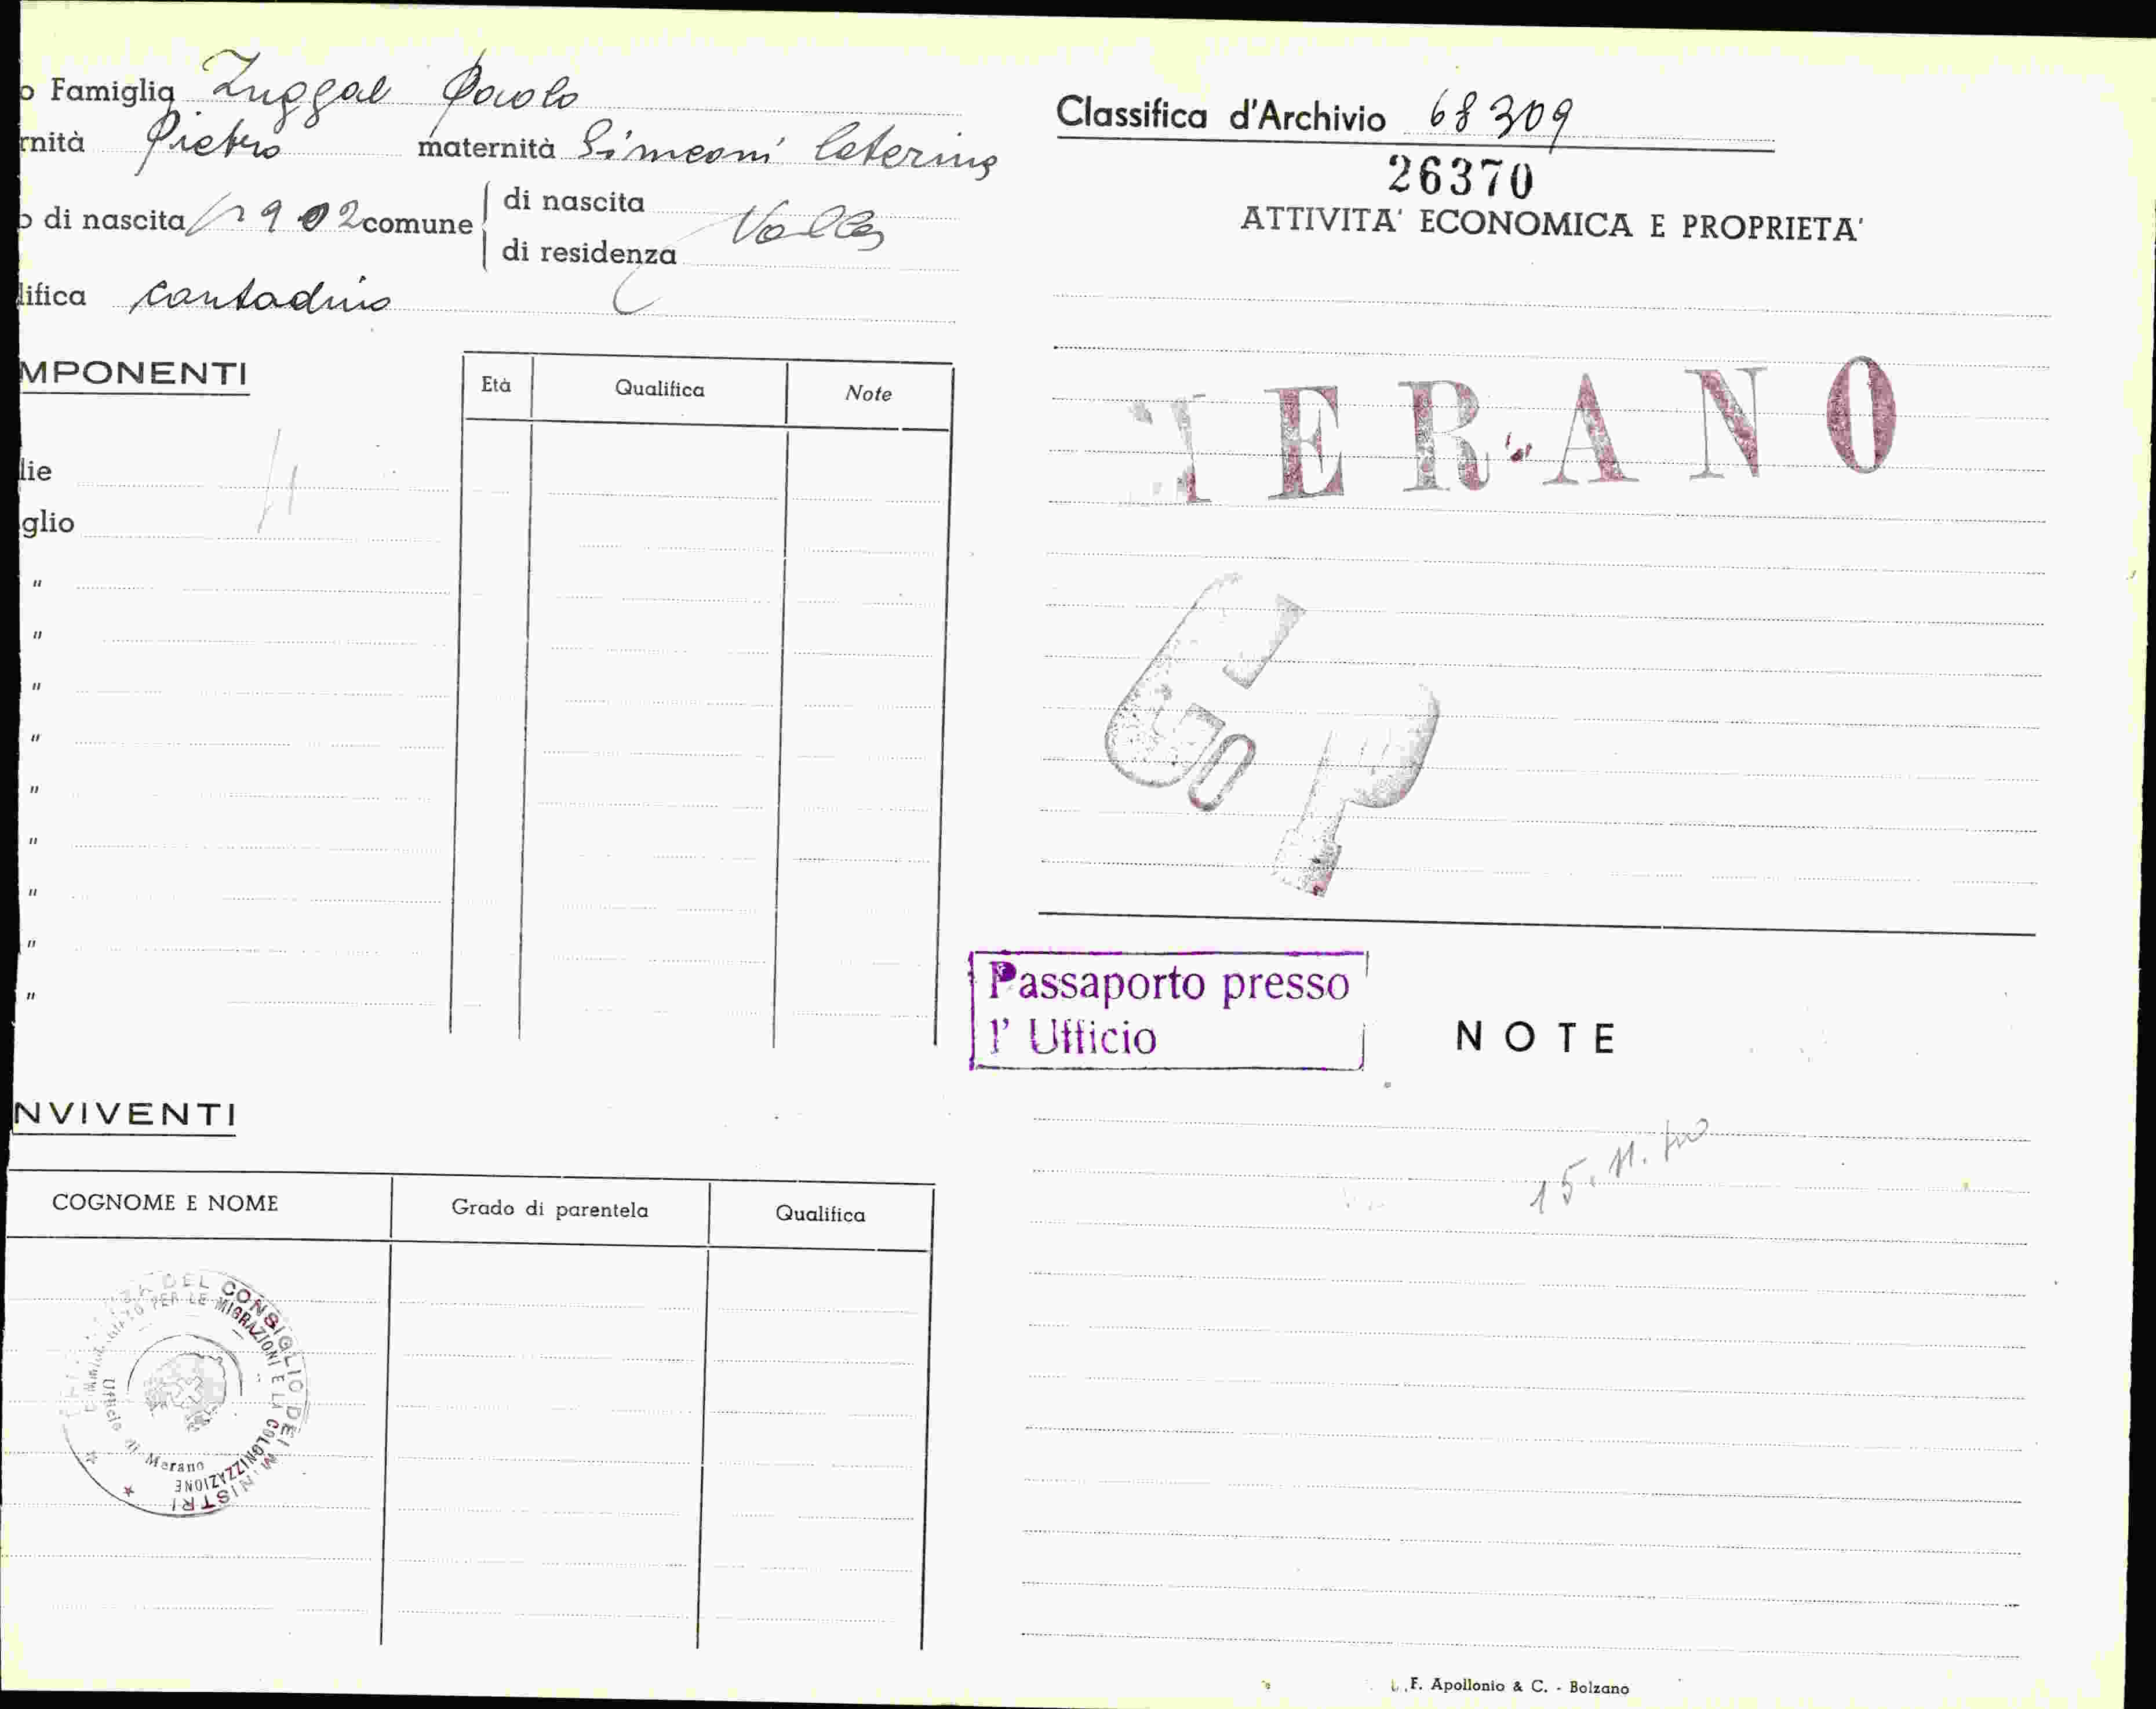 o Famiglia Zuggal Paolo
rnità Pietro maternità Simeoni Caterina
o di nascita 1902 comune di nascita Valles
di residenza
lifica contadino
MPONENTI
Età Qualifica Note
lie
glio
"
"
"
"
"
"
"
"
"
NVIVENTI
COGNOME E NOME Grado di parentela Qualifica
DEL CONSIGLIO DEI MINISTRI
PER LE MIGRAZIONI E LA COLONIZZAZIONE
Ufficio di Merano
Classifica d'Archivio 68309
26370
ATTIVITA' ECONOMICA E PROPRIETA'
MERANO
G P
50
Passaporto presso
l' Ufficio
NOTE
15. 11.
F. Apollonio & C. - Bolzano